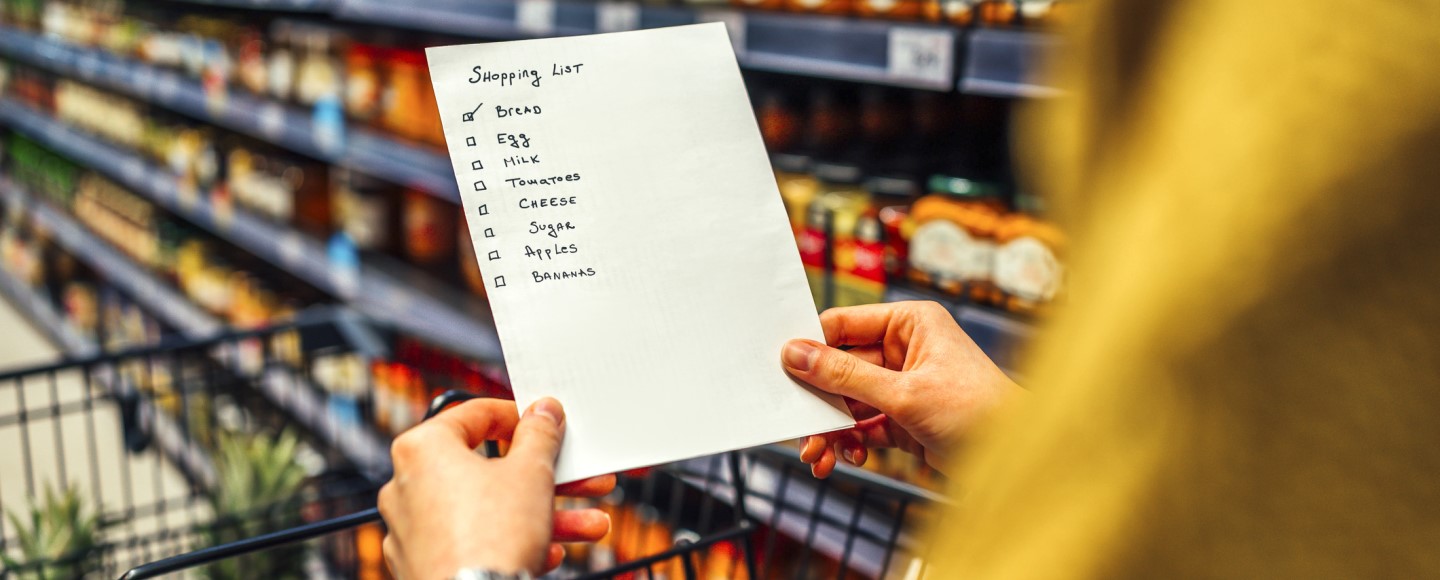 Shopping List
Bread
Egg
Milk
Tomatoes
Cheese
Sugar
Apples
Bananas